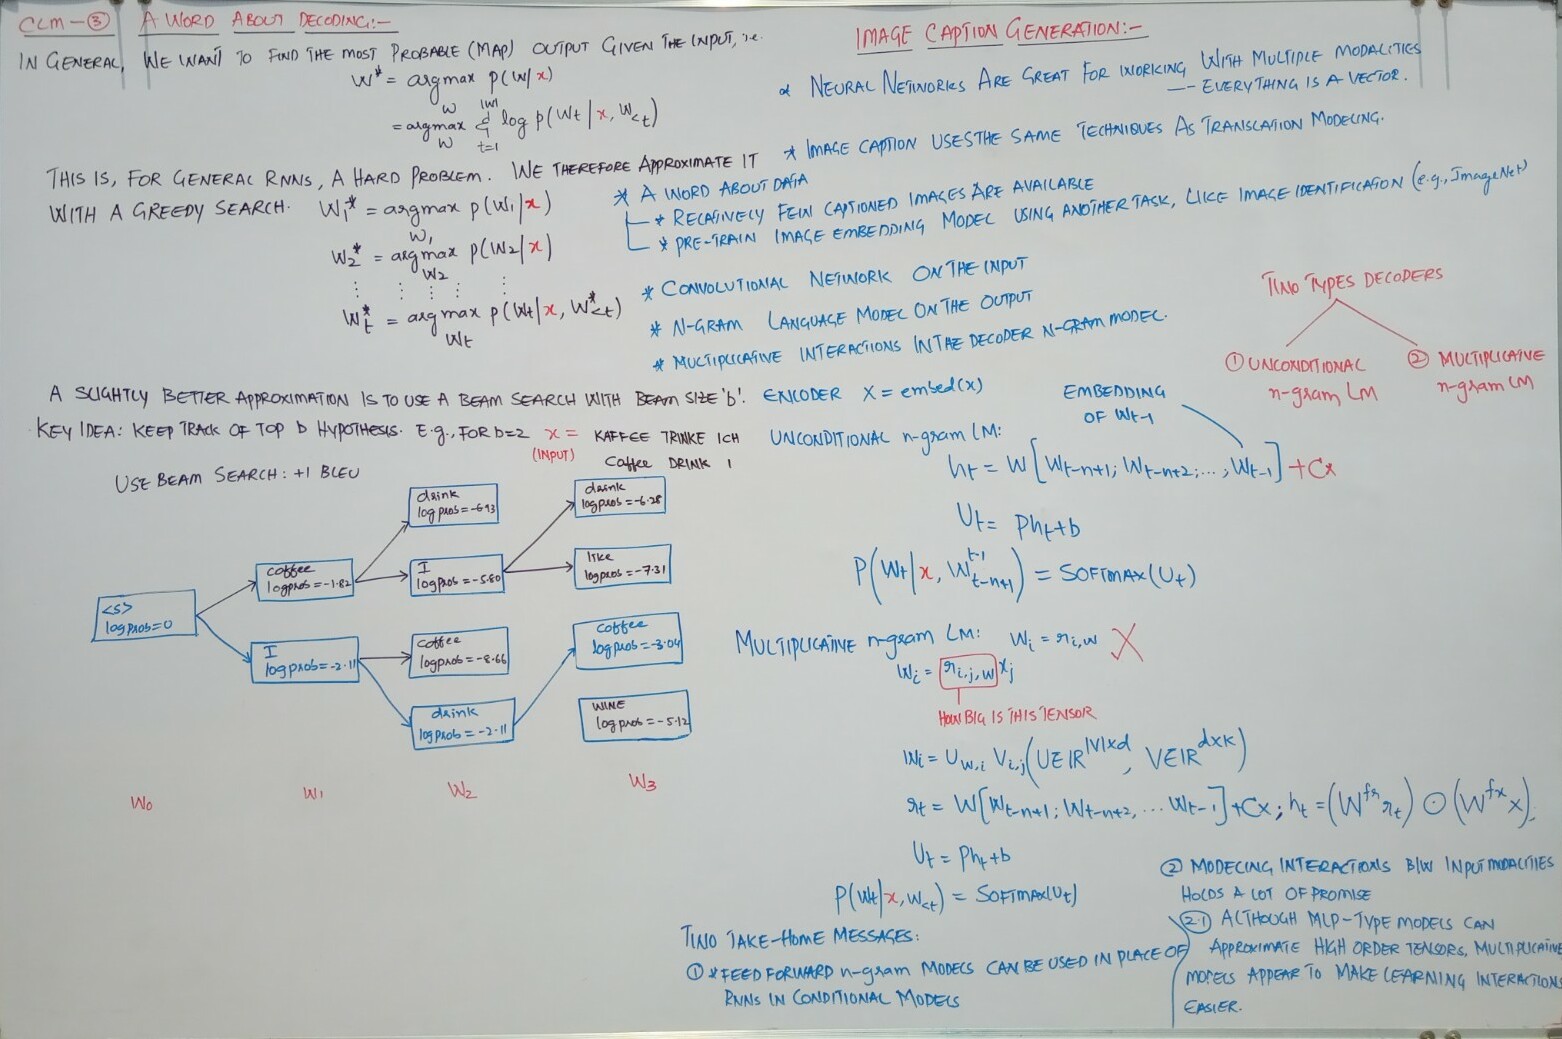 CLM-③ A WORD ABOUT DECODING:-
IN GENERAL, WE WANT TO FIND THE MOST PROBABLE (MAP) OUTPUT GIVEN THE INPUT, i.e.
W* = argmax p(W|x)
W
= argmax Σ log p(Wt|x, W<t)
W t=1 |W|
THIS IS, FOR GENERAL RNNS, A HARD PROBLEM. WE THEREFORE APPROXIMATE IT
WITH A GREEDY SEARCH. W1* = argmax p(W1|x)
W1
W2* = argmax p(W2|x)
W2
⋮ ⋮ ⋮ ⋮ ⋮
Wt* = argmax p(Wt|x, W*<t)
Wt
A SLIGHTLY BETTER APPROXIMATION IS TO USE A BEAM SEARCH WITH BEAM SIZE 'b'.
KEY IDEA: KEEP TRACK OF TOP b HYPOTHESIS. E.g., FOR b=2 x = KAFFEE TRINKE ICH
(INPUT) Coffee DRINK I
USE BEAM SEARCH: +1 BLEU
<S>
logprob=0
coffee
logprob=-1.82
I
logprob=-2.11
drink
logprob=-6.93
I
logprob=-5.80
coffee
logprob=-8.66
drink
logprob=-2.11
drink
logprob=-6.28
like
logprob=-7.31
coffee
logprob=-3.04
WINE
logprob=-5.12
W0 W1 W2 W3
IMAGE CAPTION GENERATION:-
* NEURAL NETWORKS ARE GREAT FOR WORKING WITH MULTIPLE MODALITIES
-- EVERYTHING IS A VECTOR.
* IMAGE CAPTION USES THE SAME TECHNIQUES AS TRANSLATION MODELING.
* A WORD ABOUT DATA
* RELATIVELY FEW CAPTIONED IMAGES ARE AVAILABLE
* PRE-TRAIN IMAGE EMBEDDING MODEL USING ANOTHER TASK, LIKE IMAGE IDENTIFICATION (e.g., ImageNet)
* CONVOLUTIONAL NETWORK ON THE INPUT
* N-GRAM LANGUAGE MODEL ON THE OUTPUT
* MULTIPLICATIVE INTERACTIONS IN THE DECODER N-GRAM MODEL.
TWO TYPES DECODERS
① UNCONDITIONAL
n-gram LM
② MULTIPLICAIVE
n-gram LM
ENCODER X = embed(x)
EMBEDDING
OF Wt-1
UNCONDITIONAL n-gram LM:
ht = W[Wt-n+1; Wt-n+2; ...; Wt-1] + Cx
Ut = Pht+b
P(Wt|x, W t-1 t-n+1) = SOFTMAX(Ut)
MULTIPLICAIVE n-gram LM: Wi = ri,w X
Wi = ri,j,w xj
HOW BIG IS THIS TENSOR
Wi = Uw,i Vi,j (U∈IR|V|xd, V∈IRdxk)
rt = W[Wt-n+1; Wt-n+2, ... Wt-1] + Cx; ht = (Wfr rt) ⊙ (Wfx x).
Ut = Pht+b
P(Wt|x, W<t) = SOFTMAX(Ut)
TWO TAKE-HOME MESSAGES:
① * FEED FORWARD n-gram MODELS CAN BE USED IN PLACE OF
RNNs IN CONDITIONAL MODELS
② MODELING INTERACTIONS B/W INPUT MODALITIES
HOLDS A LOT OF PROMISE
2.1 ALTHOUGH MLP-TYPE MODELS CAN
APPROXIMATE HIGH ORDER TENSORS, MULTIPLICAIVE
MODELS APPEAR TO MAKE LEARNING INTERACTIONS
EASIER.